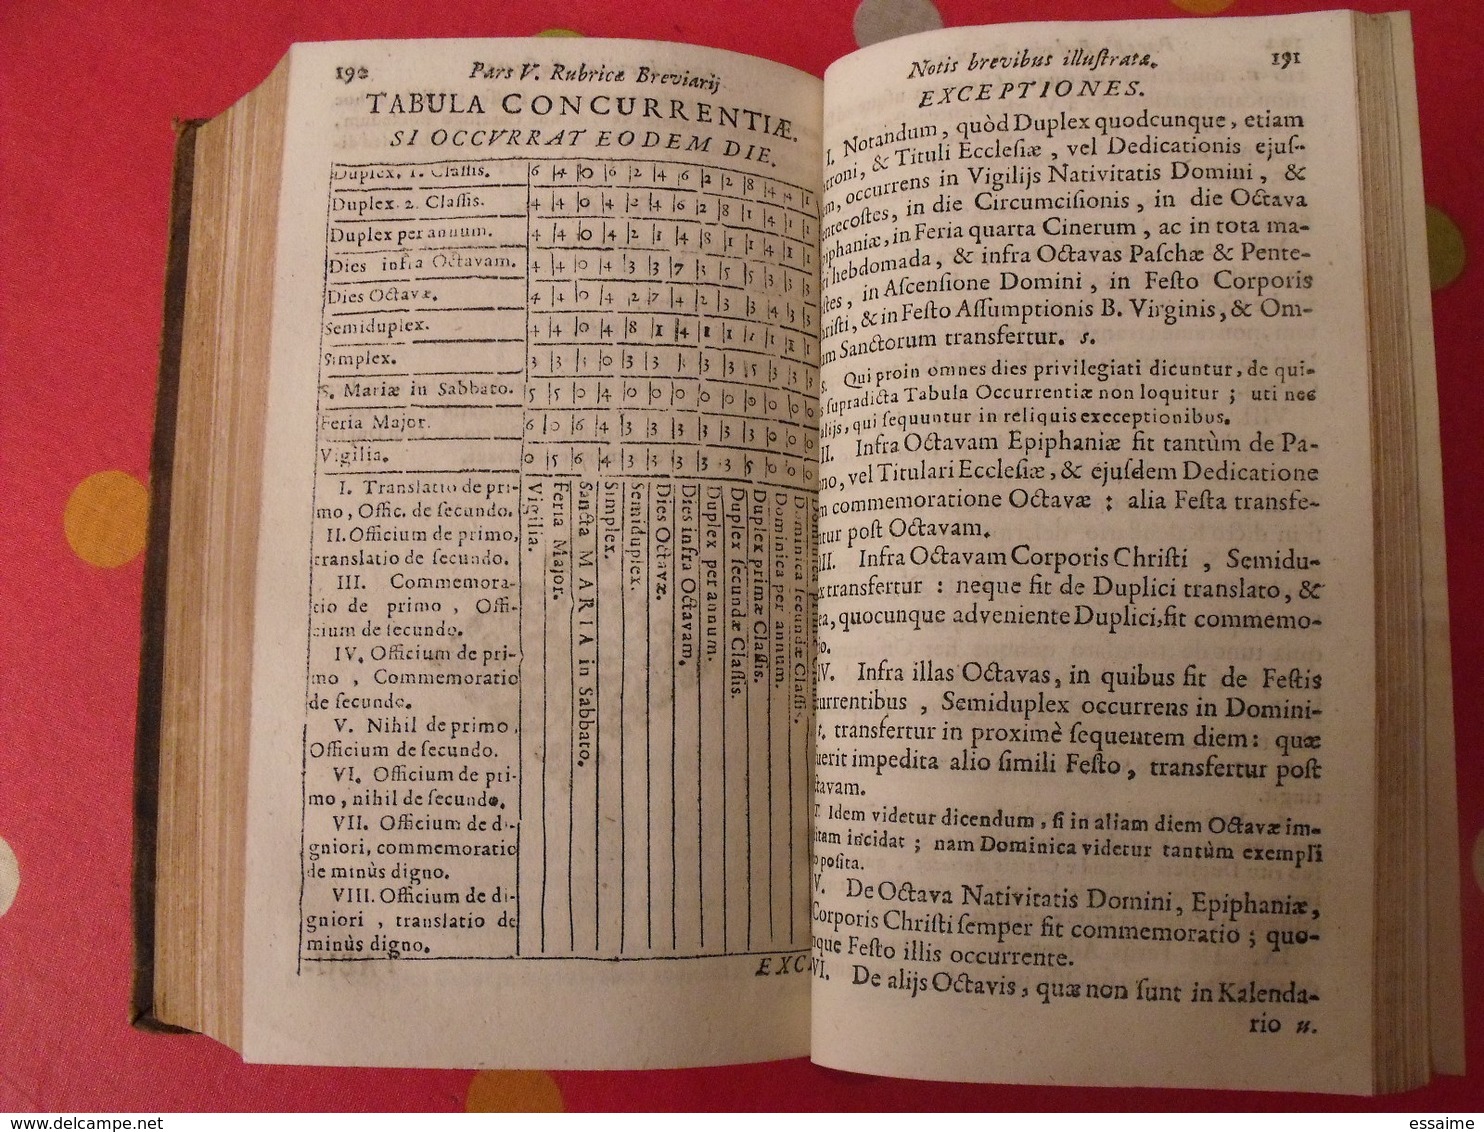 190 Pars V. Rubricæ Breviarij
TABULA CONCURRENTIÆ.
SI OCCVRRAT EODEM DIE.
Duplex. 1. Classis. 6 4 0 6 2 4 6 2 2 8 4 4 1
Duplex. 2. Classis. 4 4 0 4 2 4 6 2 8 1 4 1 1
Duplex per annum. 4 4 0 4 2 1 4 8 1 1 4 1 1
Dies infra Octavam. 4 4 0 4 3 3 7 3 5 5 3 3 3
Dies Octavæ. 4 4 0 4 2 7 4 2 3 3 4 3 3
Semiduplex. 4 4 0 4 8 1 4 1 1 1 1 1 1
Simplex. 3 3 3 0 3 3 3 3 5 3 3 3
S. Mariæ in Sabbato. 5 5 0 4 0 0 0 0 0 0 0 0 0
Feria Major. 6 0 6 4 3 3 3 3 3 3 0 0 0
Vigilia. 0 5 6 4 3 3 3 3 3 5 0 0 0
I. Translatio de pri-
mo, Offic. de secundo.
II. Officium de primo,
translatio de secundo.
III. Commemora-
tio de primo, Offi-
cium de secundo.
IV. Officium de pri-
mo, Commemoratio
de secundo.
V. Nihil de primo,
Officium de secundo.
VI. Officium de pri-
mo, nihil de secundo.
VII. Officium de di-
gniori, commemoratio
de minùs digno.
VIII. Officium de di-
gniori, translatio de
minùs digno.
Vigilia.
Feria Major.
Sancta MARIA in Sabbato.
Simplex.
Semiduplex.
Dies Octavæ.
Dies infra Octavam.
Duplex per annum.
Duplex secundæ Classis.
Duplex primæ Classis.
Dominica per annum.
Dominica secundæ Classis.
EXC
Notis brevibus illustratæ. 191
EXCEPTIONES.
I. Notandum, quòd Duplex quodcunque, etiam
troni, & Tituli Ecclesiæ, vel Dedicationis ejus-
m, occurrens in Vigilijs Nativitatis Domini, &
ntecostes, in die Circumcisionis, in die Octava
iphaniæ, in Feria quarta Cinerum, ac in tota ma-
ri hebdomada, & infra Octavas Paschæ & Pente-
stes, in Ascensione Domini, in Festo Corporis
hristi, & in Festo Assumptionis B. Virginis, & Om-
um Sanctorum transfertur. s.
s. Qui proin omnes dies privilegiati dicuntur, de qui-
s supradicta Tabula Occurrentiæ non loquitur; uti nec
alijs, qui sequuntur in reliquis execeptionibus.
II. Infra Octavam Epiphaniæ fit tantùm de Pa-
no, vel Titulari Ecclesiæ, & ejusdem Dedicatione
m commemoratione Octavæ: alia Festa transfe-
ntur post Octavam.
III. Infra Octavam Corporis Christi, Semidu-
x transfertur: neque fit de Duplici translato, &
ea, quocunque adveniente Duplici, fit commemo-
io.
IV. Infra illas Octavas, in quibus fit de Festis
currentibus, Semiduplex occurrens in Domini-
t. transfertur in proximè sequentem diem: quæ
uerit impedita alio simili Festo, transfertur post
tavam.
t. Idem videtur dicendum, si in aliam diem Octavæ im-
itam incidat; nam Dominica videtur tantùm exempli
posita.
V. De Octava Nativitatis Domini, Epiphaniæ,
Corporis Christi semper fit commemoratio; quo-
nque Festo illis occurrente.
VI. De alijs Octavis, quæ non sunt in Kalenda-
rio u.
www.delcampe.net
essaime